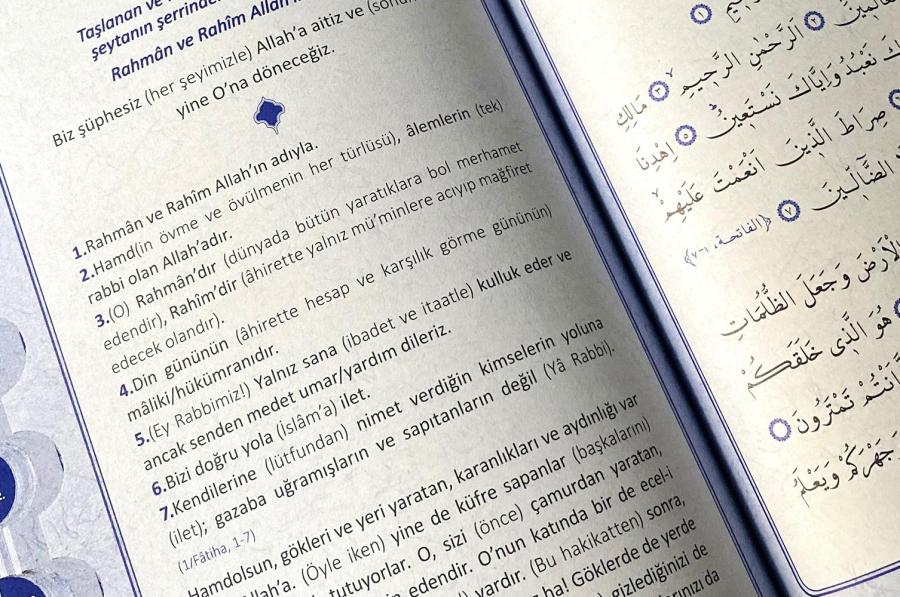 Taşlanan ve
şeytanın şerrinden
Rahmân ve Rahîm Allah'ın
Biz şüphesiz (her şeyimizle) Allah'a aitiz ve
yine O'na döneceğiz.
1.Rahmân ve Rahîm Allah'ın adıyla.
2.Hamd(in övme ve övülmenin her türlüsü), âlemlerin (tek)
rabbi olan Allah'adır.
3.(O) Rahmân'dır (dünyada bütün yaratıklara bol merhamet
edendir), Rahîm'dir (âhirette yalnız mü'minlere acıyıp mağfiret
edecek olandır).
4.Din gününün (âhirette hesap ve karşılık görme gününün)
mâliki/hükümranıdır.
5.(Ey Rabbimiz!) Yalnız sana (ibadet ve itaatle) kulluk eder ve
ancak senden medet umar/yardım dileriz.
6.Bizi doğru yola (İslâm'a) ilet.
7.Kendilerine (lütfundan) nimet verdiğin kimselerin yoluna
(ilet); gazaba uğramışların ve sapıtanların değil (Yâ Rabbi).
(1/Fâtiha, 1-7)
Hamdolsun, gökleri ve yeri yaratan, karanlıkları ve aydınlığı var
Allah'a. (Öyle iken) yine de küfre sapanlar (başkalarını)
tutuyorlar. O, sizi (önce) çamurdan yaratan,
edendir. O'nun katında bir de ecel-i
vardır. (Bu hakikatten) sonra,
ha! Göklerde de yerde
gizlediğinizi de
١
٢ اَلرَّحْمٰنِ الرَّحٖيمِ ٣ مَالِكِ
نَعْبُدُ وَاِيَّاكَ نَسْتَعٖينُ ٥ اِهْدِنَا
صِرَاطَ الَّذٖينَ اَنْعَمْتَ عَلَيْهِمْ
الضَّٓالّٖينَ ٧ ﴿الفاتحة، ١-٧﴾
الْاَرْضَ وَجَعَلَ الظُّلُمَاتِ
هُوَ الَّذٖى خَلَقَكُمْ
اَنْتُمْ تَمْتَرُونَ
جَهْرَكُمْ وَيَعْلَمُ